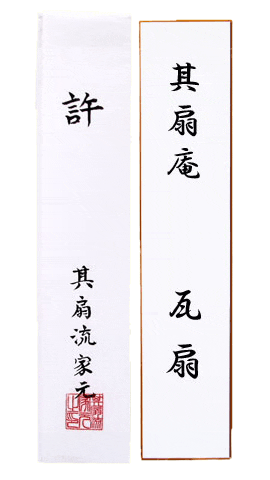 其扇庵 瓦扇
許
其扇流家元